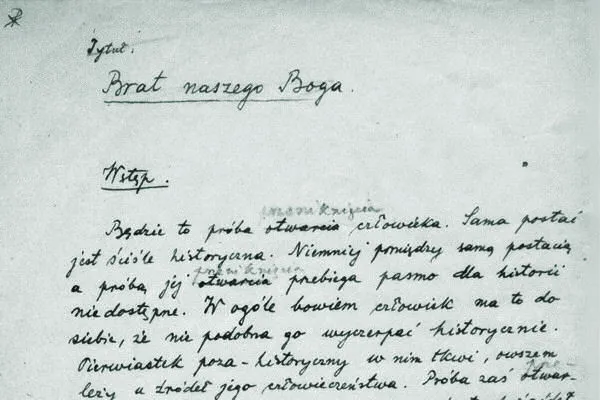 Tytuł:
Brat naszego Boga.
Wstęp.
przeniknięcia
Będzie to próba otwarcia człowieka. Sama postać
jest ściśle historyczna. Niemniej pomiędzy samą postacią
przeniknięcia
a próbą jej otwarcia przebiega pasmo dla historii
niedostępne. W ogóle bowiem człowiek ma to do
siebie, że nie podobna go wyczerpać historycznie.
Pierwiastek poza-historyczny w nim tkwi, owszem
leży u źródeł jego człowieczeństwa. Próba zaś otwar-